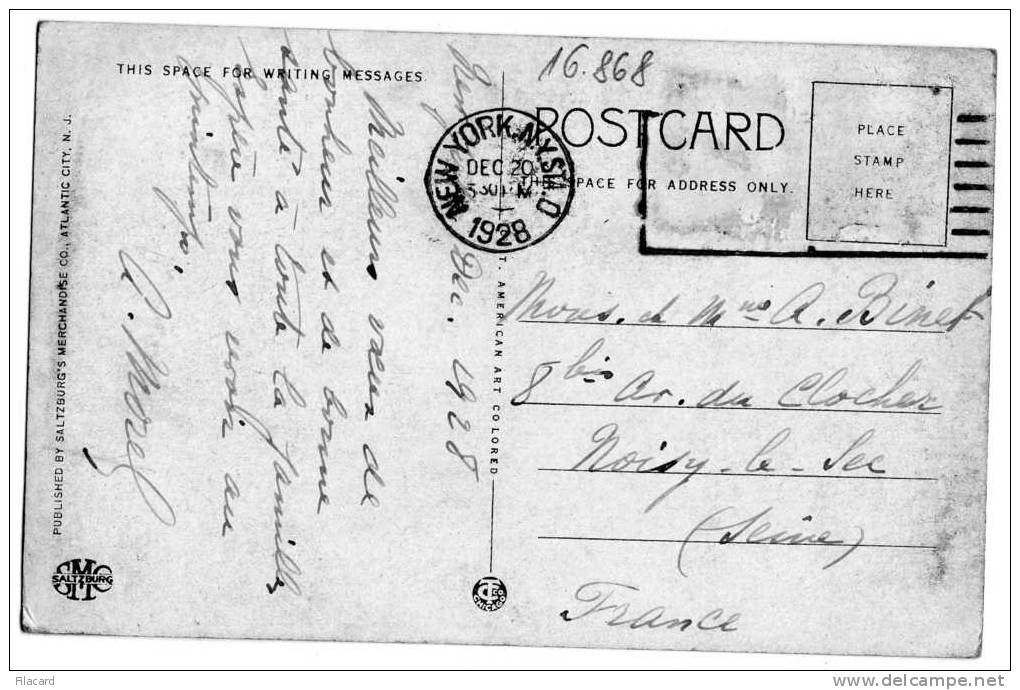 16.868
THIS SPACE FOR WRITING MESSAGES.
POSTCARD
SPACE FOR ADDRESS ONLY.
PLACE
STAMP
HERE
NEW YORK, N.Y. STA. O
DEC 20
1928
Dec. 1928
Meilleurs vœux de
bonheur et de bonne
santé à toute la famille
espère vous revoir au
printemps.
A. Morel
Mons. et Mme A. Binet
8 bis Av. du Clocher
Noisy-le-Sec
(Seine)
France
AMERICAN ART COLORED
PUBLISHED BY SALTZBURG'S MERCHANDISE CO., ATLANTIC CITY, N. J.
SALTZBURG
CHICAGO
Filacard
www.delcampe.net